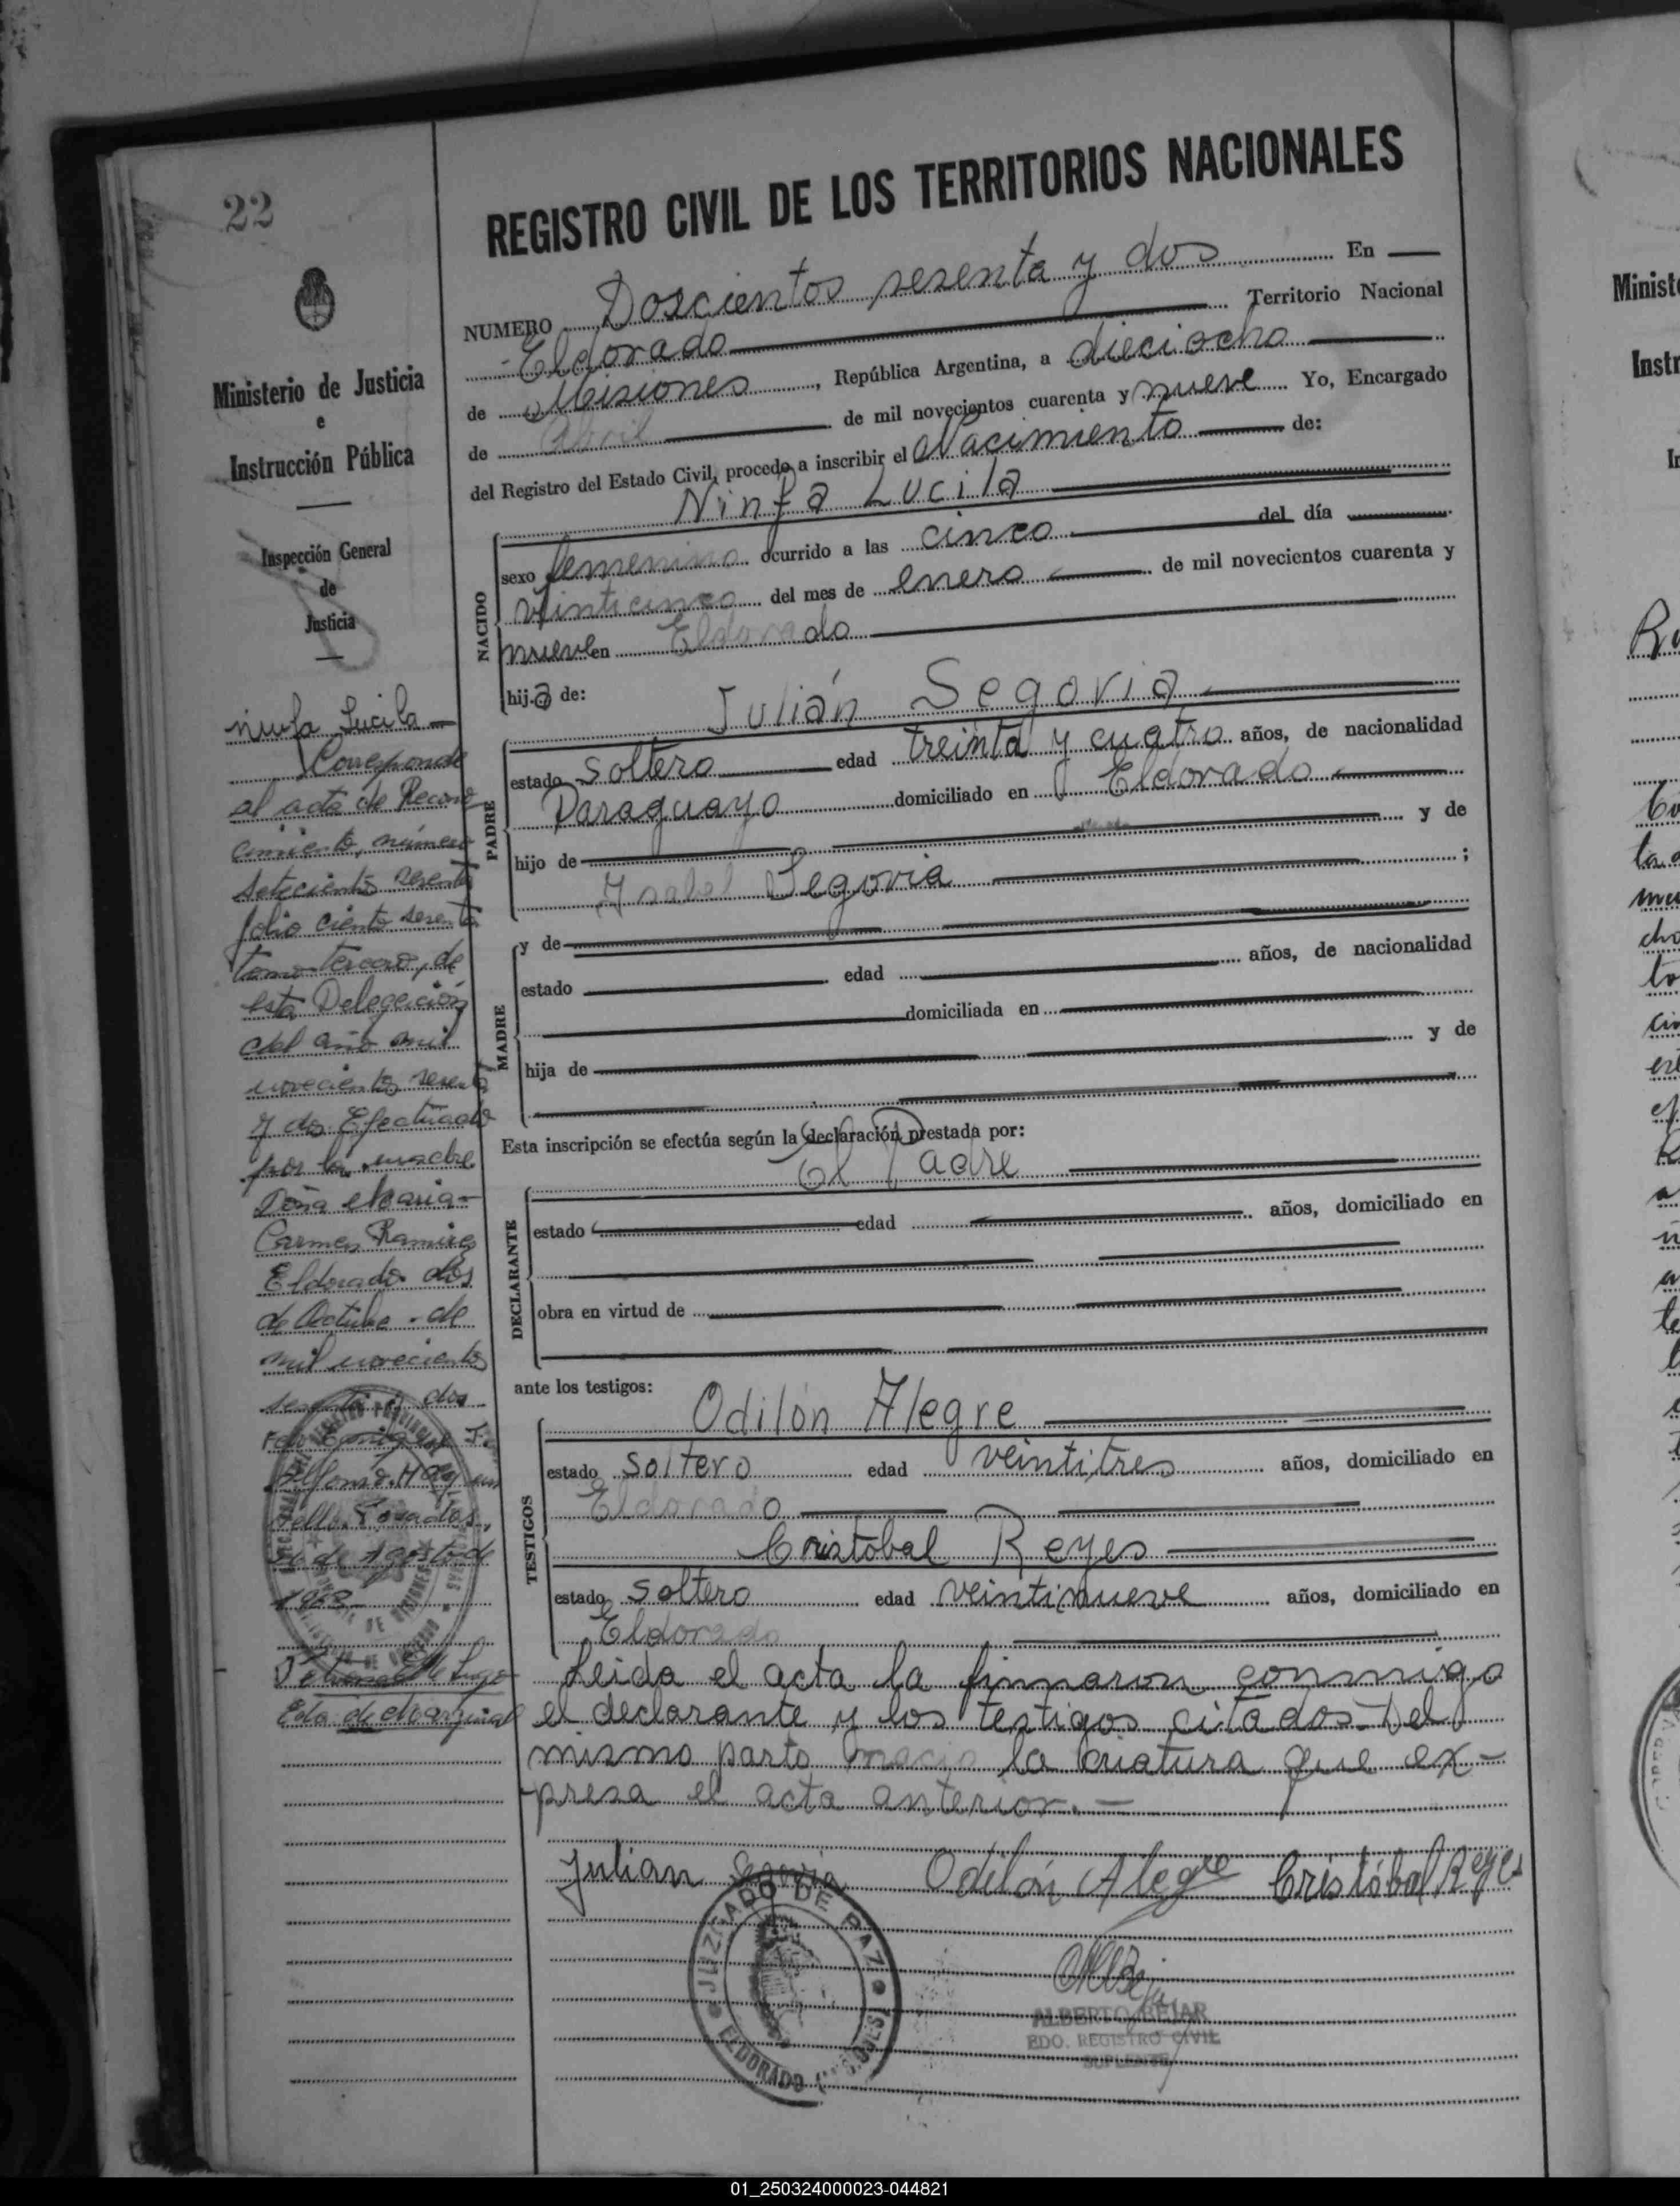 22
REGISTRO CIVIL DE LOS TERRITORIOS NACIONALES
Ministerio de Justicia
e
Instrucción Pública
Inspección General
de
Justicia
NUMERO Doscientos sesenta y dos En
Eldorado Territorio Nacional
de Misiones, República Argentina, a dieciocho
de Abril de mil novecientos cuarenta y nueve Yo, Encargado
del Registro del Estado Civil, procedo a inscribir el Nacimiento de:
NACIDO
Ninfa Lucila
sexo femenino ocurrido a las cinco del día
veinticinco del mes de enero de mil novecientos cuarenta y
nueve en Eldorado
hija de:
PADRE
Julián Segovia
estado soltero edad treinta y cuatro años, de nacionalidad
Paraguayo domiciliado en Eldorado
hijo de y de
Ysabel Segovia ;
MADRE
y de
estado edad años, de nacionalidad
domiciliada en
hija de y de
Esta inscripción se efectúa según la declaración prestada por:
DECLARANTE
El Padre
estado edad años, domiciliado en
obra en virtud de
ante los testigos:
TESTIGOS
Odilón Alegre
estado soltero edad veintitres años, domiciliado en
Eldorado
Cristobal Reyes
estado soltero edad veintinueve años, domiciliado en
Eldorado
Leida el acta la firmaron conmigo
el declarante y los testigos citados. Del
mismo parto nacio la criatura que ex-
presa el acta anterior.-
Julian Segovia Odilón Alegre Cristóbal Reyes
JUZGADO DE PAZ
ELDORADO
ALBERTO BEJAR
EDO. REGISTRO CIVIL
SUPLENTE
Ninfa Lucila
Corresponde
al acta de Recono
cimiento, número
setecientos sesenta
folio ciento sesenta
tomo tercero, de
esta Delegación
del año mil
novecientos sesenta
y dos Efectuado
por la madre
Doña Maria
Carmen Ramirez
Eldorado dos
de Octubre de
mil novecientos
sesenta y dos
Hay un
sello. Posadas,
de Agosto de
de Lugo
de Marginal
01_250324000023-044821